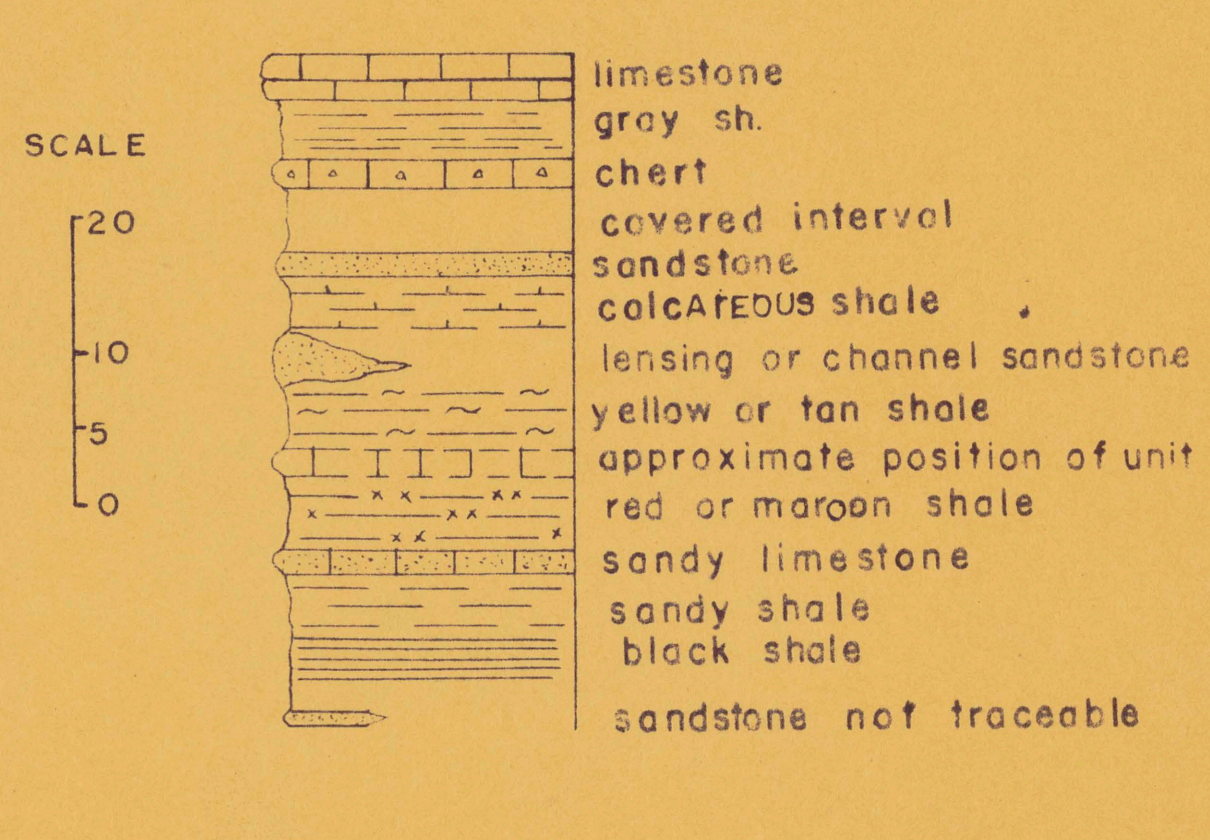 limestone
gray sh.
SCALE
chert
20
covered interval
sandstone
calcAREOUS shale
10
lensing or channel sandstone
yellow or tan shale
5
approximate position of unit
0
red or maroon shale
sandy limestone
sandy shale
black shale
sandstone not traceable